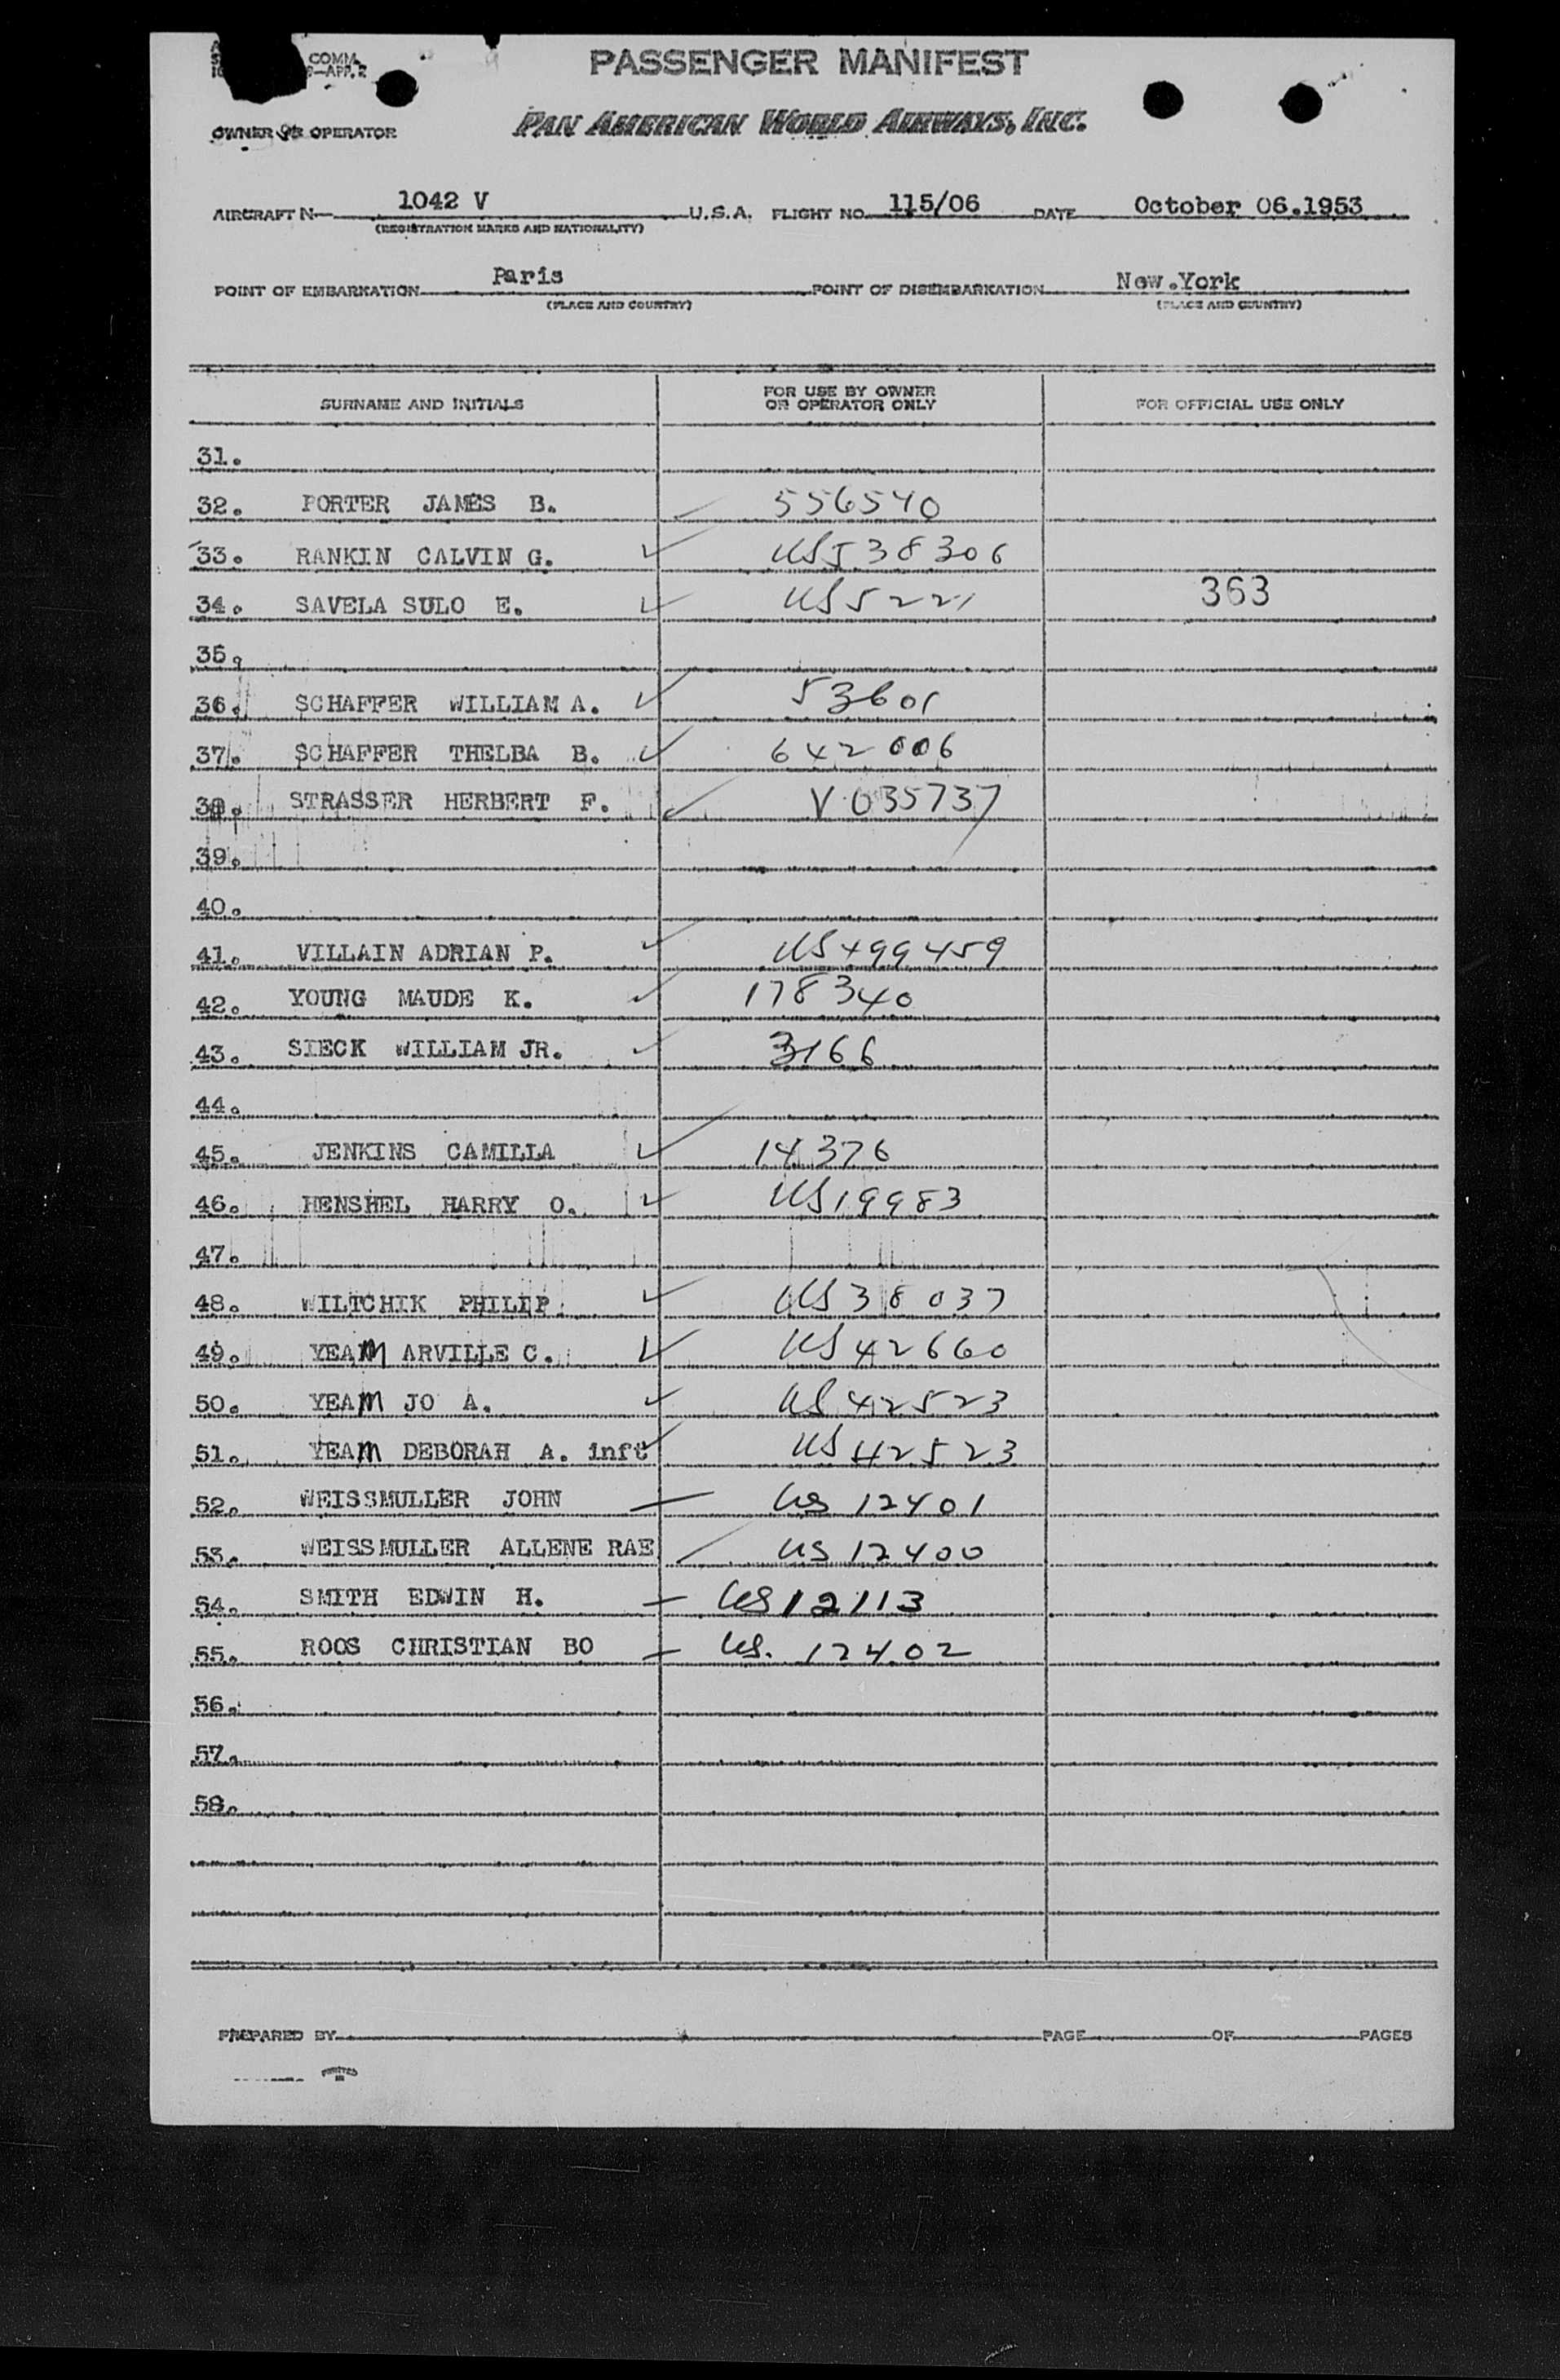 COMM.
—APP. 2
PASSENGER MANIFEST
OWNER OR OPERATOR
PAN AMERICAN WORLD AIRWAYS, INC.
AIRCRAFT N— 1042 V U.S.A. FLIGHT NO. 115/06 DATE October 06.1953
(REGISTRATION MARKS AND NATIONALITY)
POINT OF EMBARKATION Paris POINT OF DISEMBARKATION New.York
(PLACE AND COUNTRY) (PLACE AND COUNTRY)
SURNAME AND INITIALS FOR USE BY OWNER OR OPERATOR ONLY FOR OFFICIAL USE ONLY
31.
32. PORTER JAMES B. 556540
33. RANKIN CALVIN G. ✓ US538306
34. SAVELA SULO E. ✓ US5221 363
35.
36. SCHAFFER WILLIAM A. ✓ 53601
37. SCHAFFER THELBA B. ✓ 642006
38. STRASSER HERBERT F. ✓ V.035737
39.
40.
41. VILLAIN ADRIAN P. ✓ US499459
42. YOUNG MAUDE K. ✓ 178340
43. SIECK WILLIAM JR. ✓ 3166
44.
45. JENKINS CAMILLA ✓ 14376
46. HENSHEL HARRY O. ✓ US19983
47.
48. WILTCHIK PHILIP ✓ US38037
49. YEAM ARVILLE C. ✓ US42660
50. YEAM JO A. ✓ US42523
51. YEAM DEBORAH A. inft ✓ US42523
52. WEISSMULLER JOHN — US 12401
53. WEISSMULLER ALLENE RAE US 12400
54. SMITH EDWIN H. — US12113
55. ROOS CHRISTIAN BO — US. 12402
56.
57.
58.
PREPARED BY PAGE OF PAGES
PRINTED IN